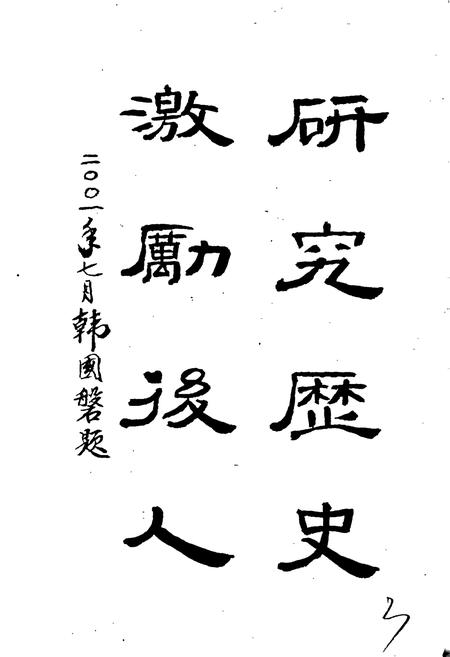 研究歷史
激勵後人
二〇〇一年七月韩國磐題